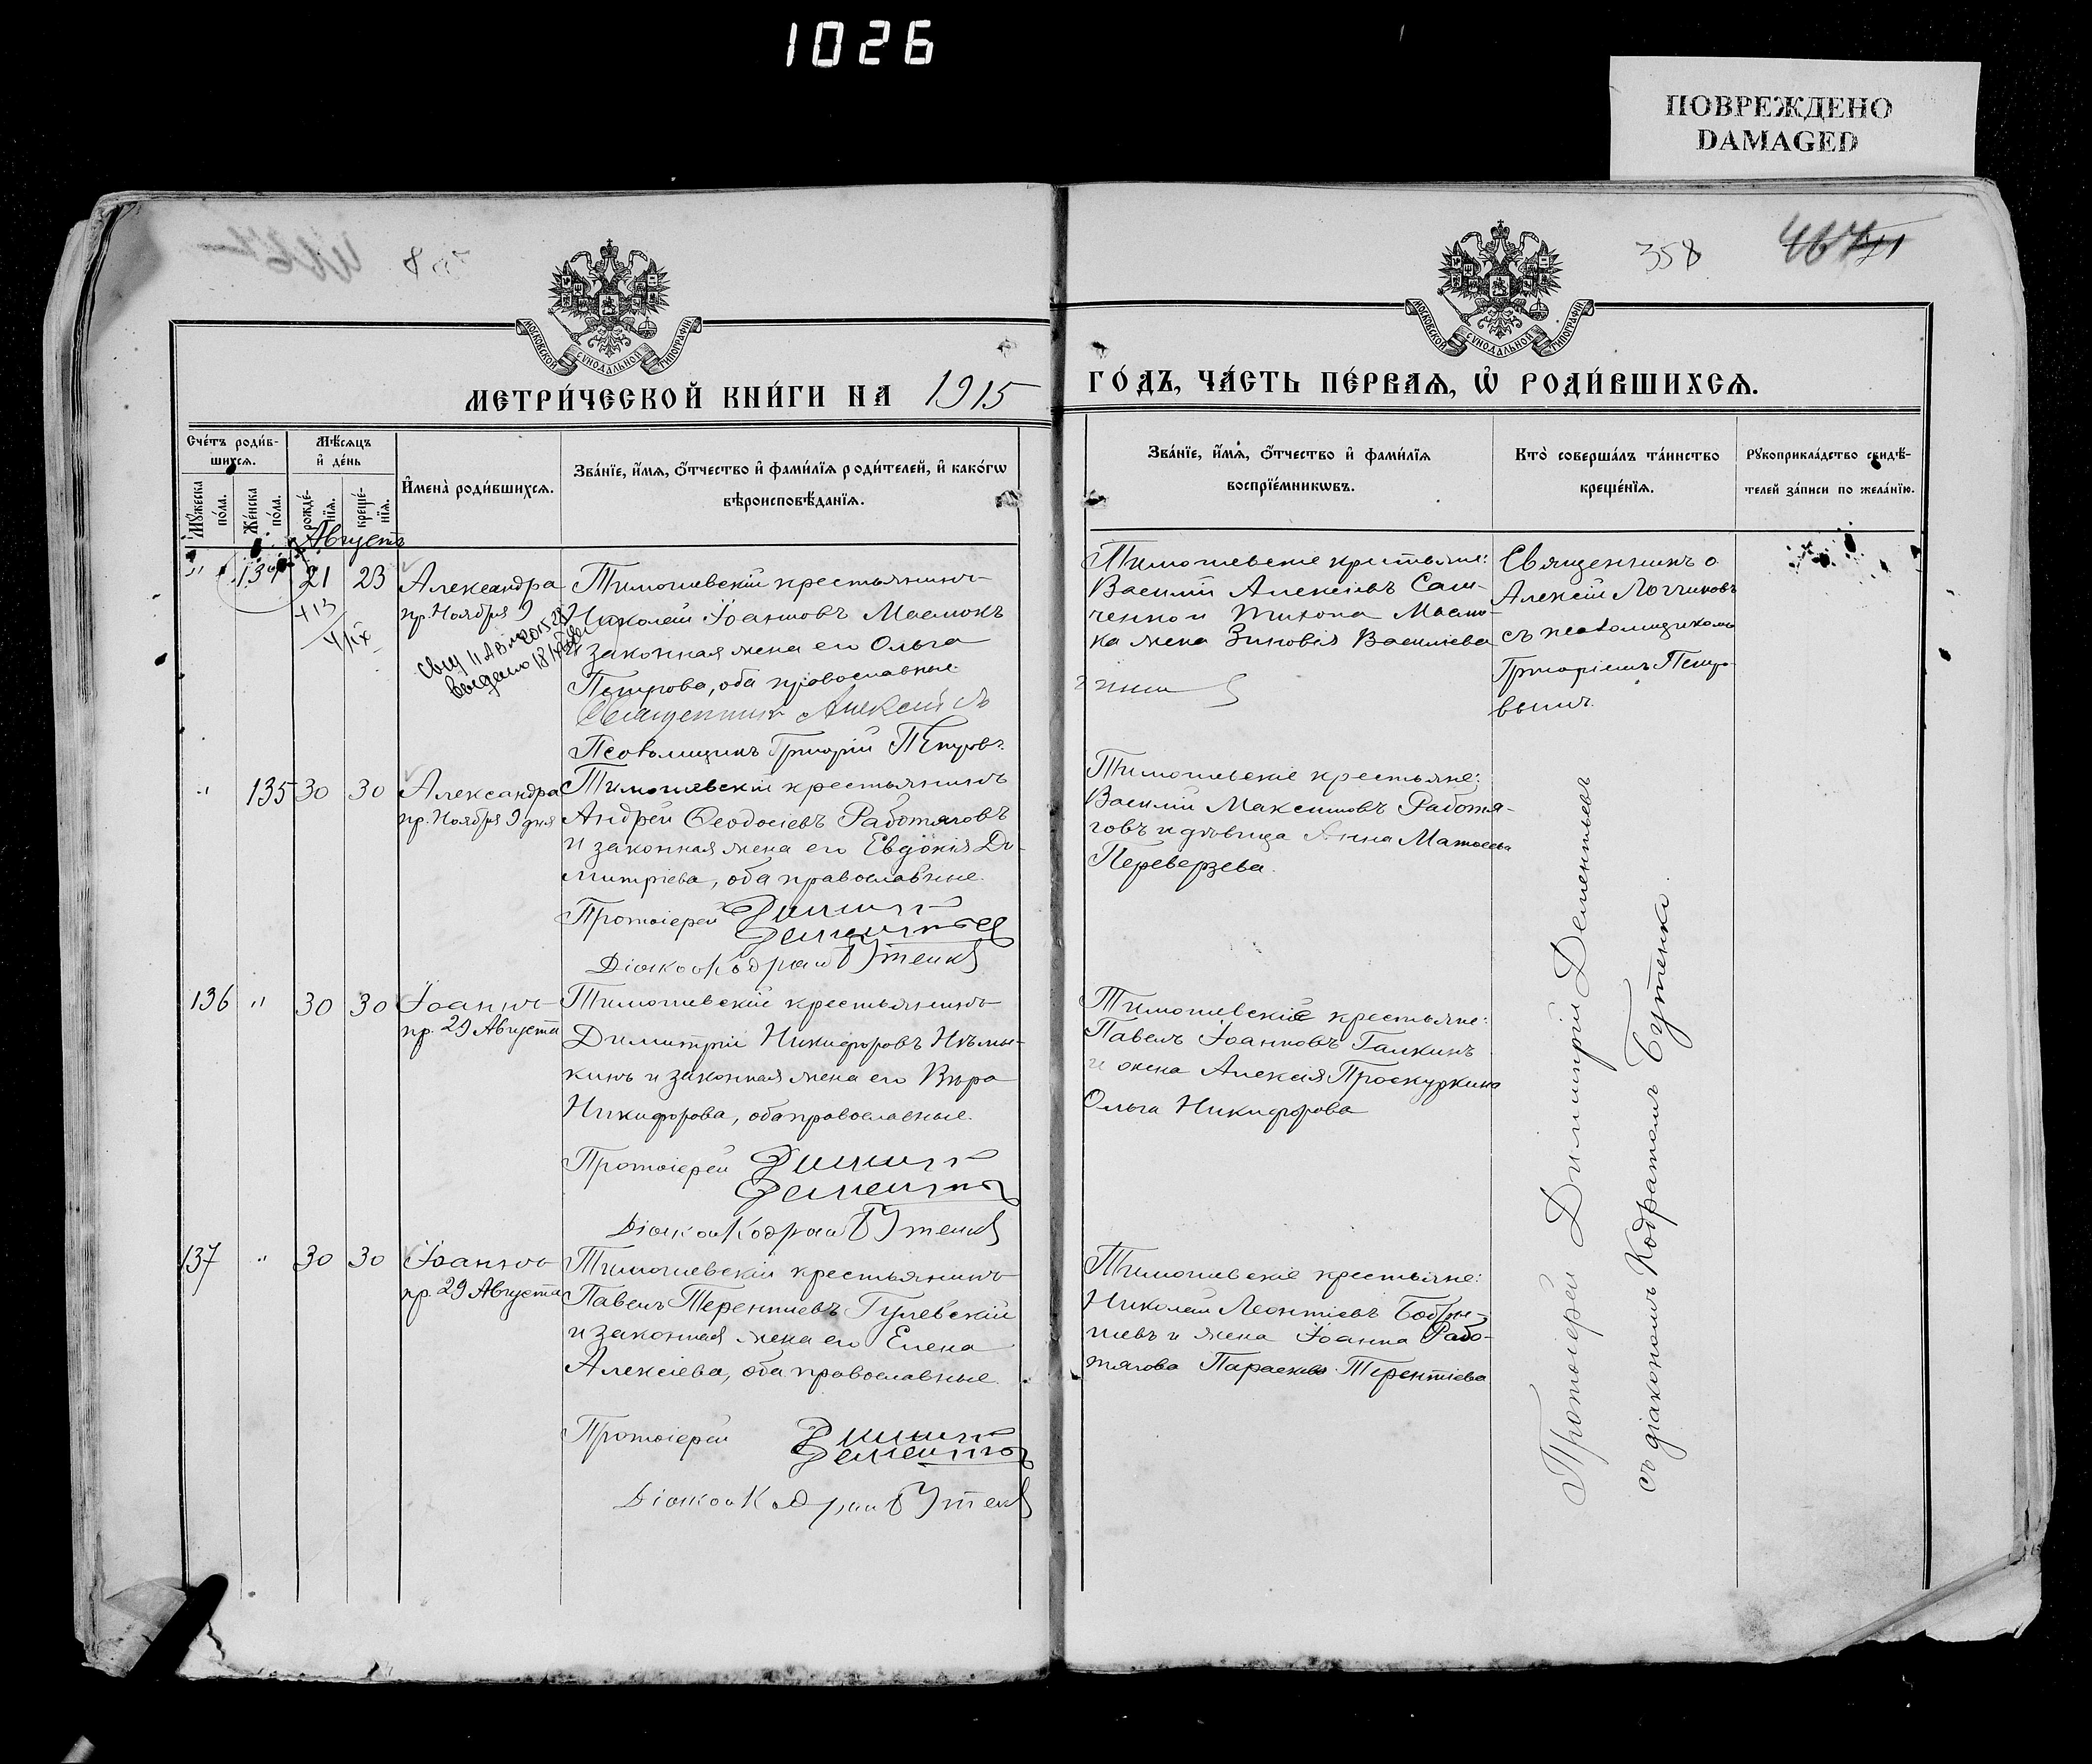 1026
ПОВРЕЖДЕНО
DAMAGED
358
МОСКОВСКОЙ СѴНОДАЛЬНОЙ ТИПОГРАФІИ
МОСКОВСКОЙ СѴНОДАЛЬНОЙ ТИПОГРАФІИ
МЕТРИ́ЧЕСКОЙ КНИ́ГИ НА 1915
ГО́ДЪ, ЧА́СТЬ ПЕ́РВАѦ, Ѡ҆ РОДИ́ВШИХСѦ.
Сче́тъ роди́в-
шихсѧ.
Мꙋ́жеска по́ла.
Же́нска по́ла.
Мѣ́сѧцъ
и҆ де́нь
рожде́-
нїѧ.
креще́-
нїѧ.
И҆мена̀ роди́вшихсѧ.
Зва́нїе, и҆́мѧ, ѻ҆́тчество и҆ фами́лїѧ роди́телей, и҆ како́гѡ
вѣроисповѣ́данїѧ.
Зва́нїе, и҆́мѧ, ѻ҆́тчество и҆ фами́лїѧ
воспрїе́мникѡвъ.
Кто̀ соверша́лъ та́инство
креще́нїѧ.
Рꙋкоприкла́дство свидѣ́-
телей за́писи по жела́нїю.
Августъ
" 134 21 23 Александра
пр. Ноября 9
выдано
Тимошевскій крестьянинъ
Николай Іоанновъ Маслюкъ
законная жена его Ольга
Петрова, оба православные.
Священникъ Алексій
Псаломщикъ Григорій Петровъ.
Тимошевскіе крестьяне:
Василій Алексіевъ Сам-
ченко и Тихона Маслю-
ка жена Зиновія Васильева
Священникъ о.
Алексій
съ псаломщикомъ
Григоріемъ Петро-
вымъ.
" 135 30 30 Александра
пр. Ноября 9 дня
Тимошевскій крестьянинъ
Андрей Ѳеодосіевъ Работяговъ
и законная жена его Евдокія Ди-
митріева, оба православные.
Протоіерей Димитрій
Дементьевъ
Діаконъ Кодратъ Бутенко
Тимошевскіе крестьяне:
Василій Максимовъ Работя-
говъ и дѣвица Анна Матѳеева
Переверзева.
136 " 30 30 Іоаннъ
пр. 29 Августа
Тимошевскій крестьянинъ
Димитрій Никифоровъ Нѣмы-
кинъ и законная жена его Вѣра
Никифорова, оба православные.
Протоіерей Димитрій
Дементьевъ
Діаконъ Кодратъ Бутенко
Тимошевскіе крестьяне:
Павелъ Іоанновъ Галкинъ
и жена Алексія Проскуркина
Ольга Никифорова
137 " 30 30 Іоаннъ
пр. 29 Августа
Тимошевскій крестьянинъ
Павелъ Терентіевъ Гулевскій
и законная жена его Елена
Алексіева, оба православные.
Протоіерей Димитрій
Дементьевъ
Діаконъ Кодратъ Бутенко
Тимошевскіе крестьяне:
Николай Леонтіевъ
и жена Іоанна Рабо-
тягова Параскева Терентіева
Протоіерей Димитрій Дементьевъ
съ діакономъ Кодратомъ Бутенко.